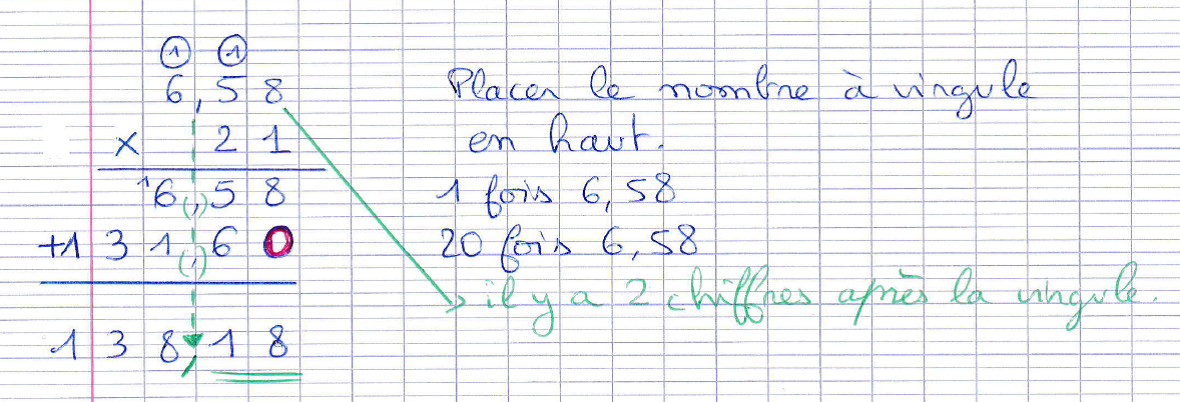 ① ①
6,58 Placer le nombre à virgule
x 21 en haut.
¹6(,)58 1 fois 6,58
+131(,)60 20 fois 6,58
→ il y a 2 chiffres après la virgule.
138,18